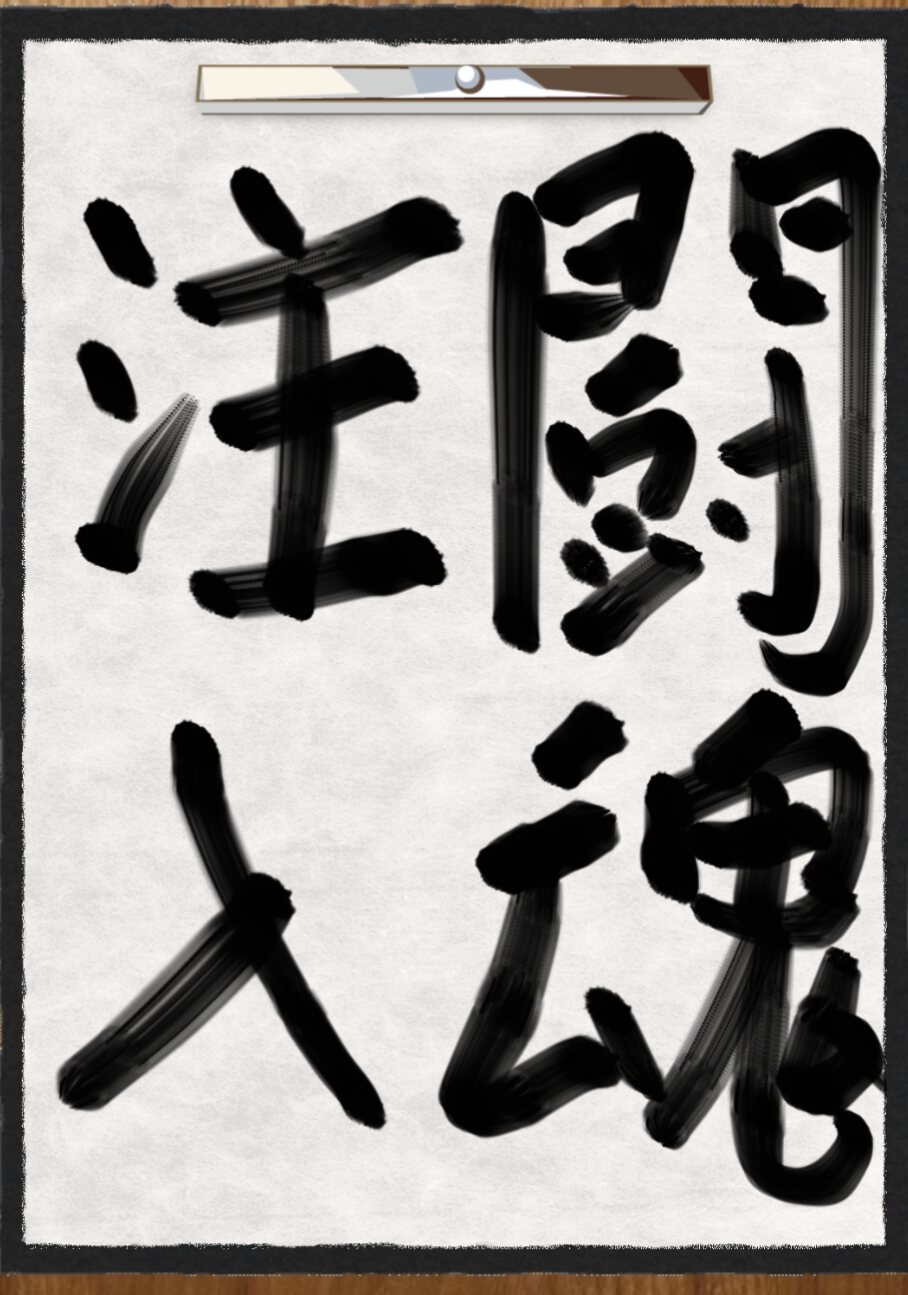 闘魂
注入